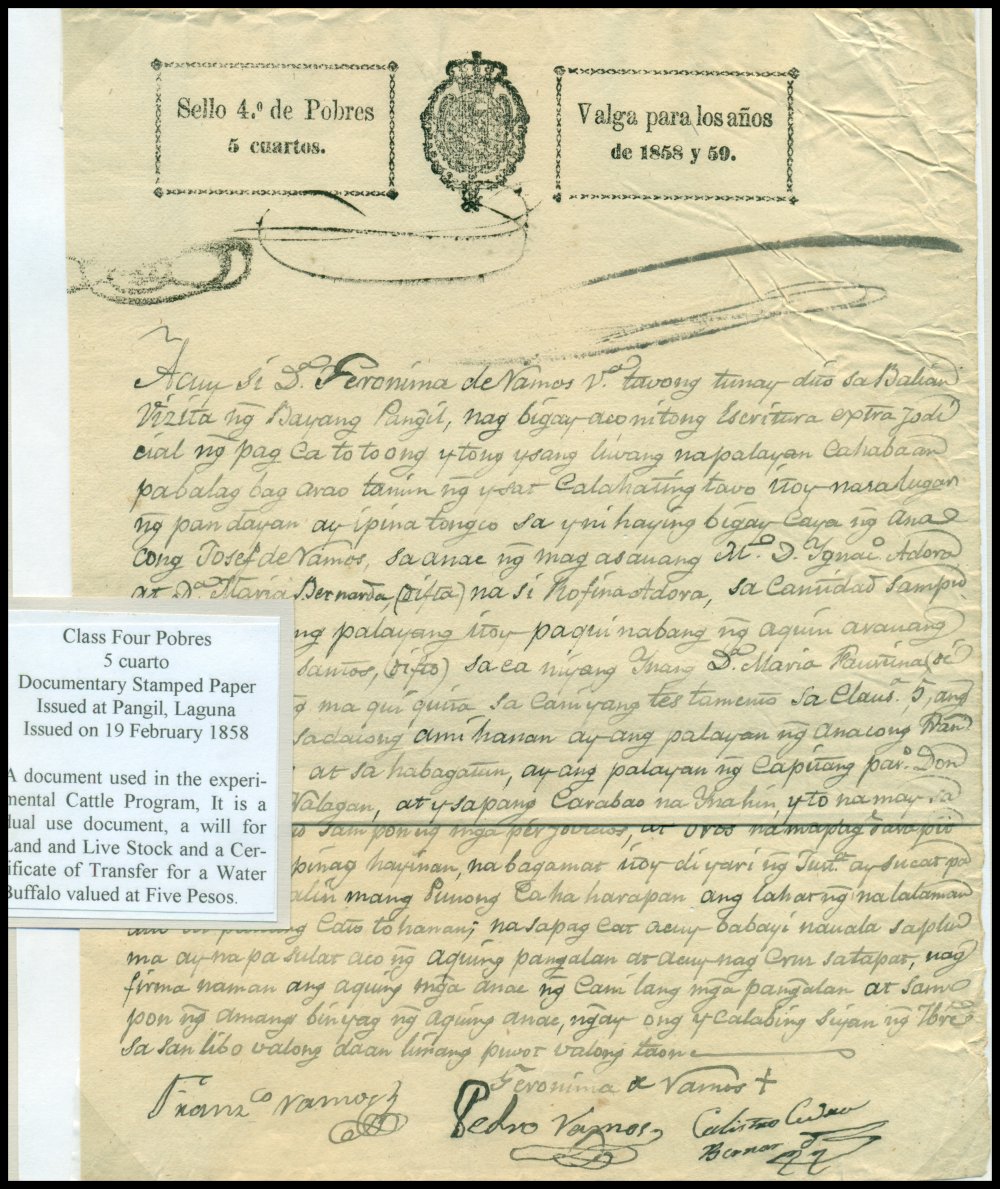 Sello 4.º de Pobres
5 cuartos.
Valga para los años
de 1858 y 59.
Acuy si D.ª Geronima de Ramos V.da tavong tunay dito sa Balian
Vizita ng Bayang Pangil, nag bigay aco nitong Escritura extra Jodi
cial ng pag ca to toong ytong ysang liwang na palayan Cahabaan
pabalagbag arao tanim ng ysat Calahating tavo itoy nasa lugar
ng pandayan ay ipina tongco sa yni haying bigay Caya ng Ana
Cong Josef de Ramos, sa anac ng mag asauang M.º D.ⁿ Ygnac.º Adora
at D.ª Maria Bernarda, (difta) na si Rofina Adora, sa Cantidad Sampu
ng palayang itoy paqui nabang ng aquin asauang
santos, (difto) sa ca niyang Ynang D.ª Maria Faustina (di
ma qui quita sa Caniyang testamento sa Claus.ª 5, ang
sadacong amihanan ay ang palayan ng anacong Fran
at sa habagatan, ay ang palayan ng Capitang pas.º Don
Valagan, at ysapang Carabao na Ynahin yto na may ha
Sampon ng mga perjovicios, at Oros na mapag
pinag hayinan, na bagamat itoy di yari ng Just.ª ay sucat pa
alin mang Punong Caha harapan ang lahat ng nalalaman
Cato tohanan; na sapag Cat acuy babayi nauala sa plu
ma ay na pa sulat aco ng aquing pangalan at acuy nag Crus satapat, nag
firma naman ang aquing mga anac ng Cani lang mga pangalan at Sam
pon ng amang binyag ng aquing anac, ngay ong y Calabing siyam ng 7bre
sa san libo valong daan limang puvot valong taon
Geronima de Ramos +
Franz.co Ramos
Pedro Ramos
Calistro
Class Four Pobres
5 cuarto
Documentary Stamped Paper
Issued at Pangil, Laguna
Issued on 19 February 1858
A document used in the experi-
mental Cattle Program, It is a
dual use document, a will for
Land and Live Stock and a Cer-
tificate of Transfer for a Water
Buffalo valued at Five Pesos.